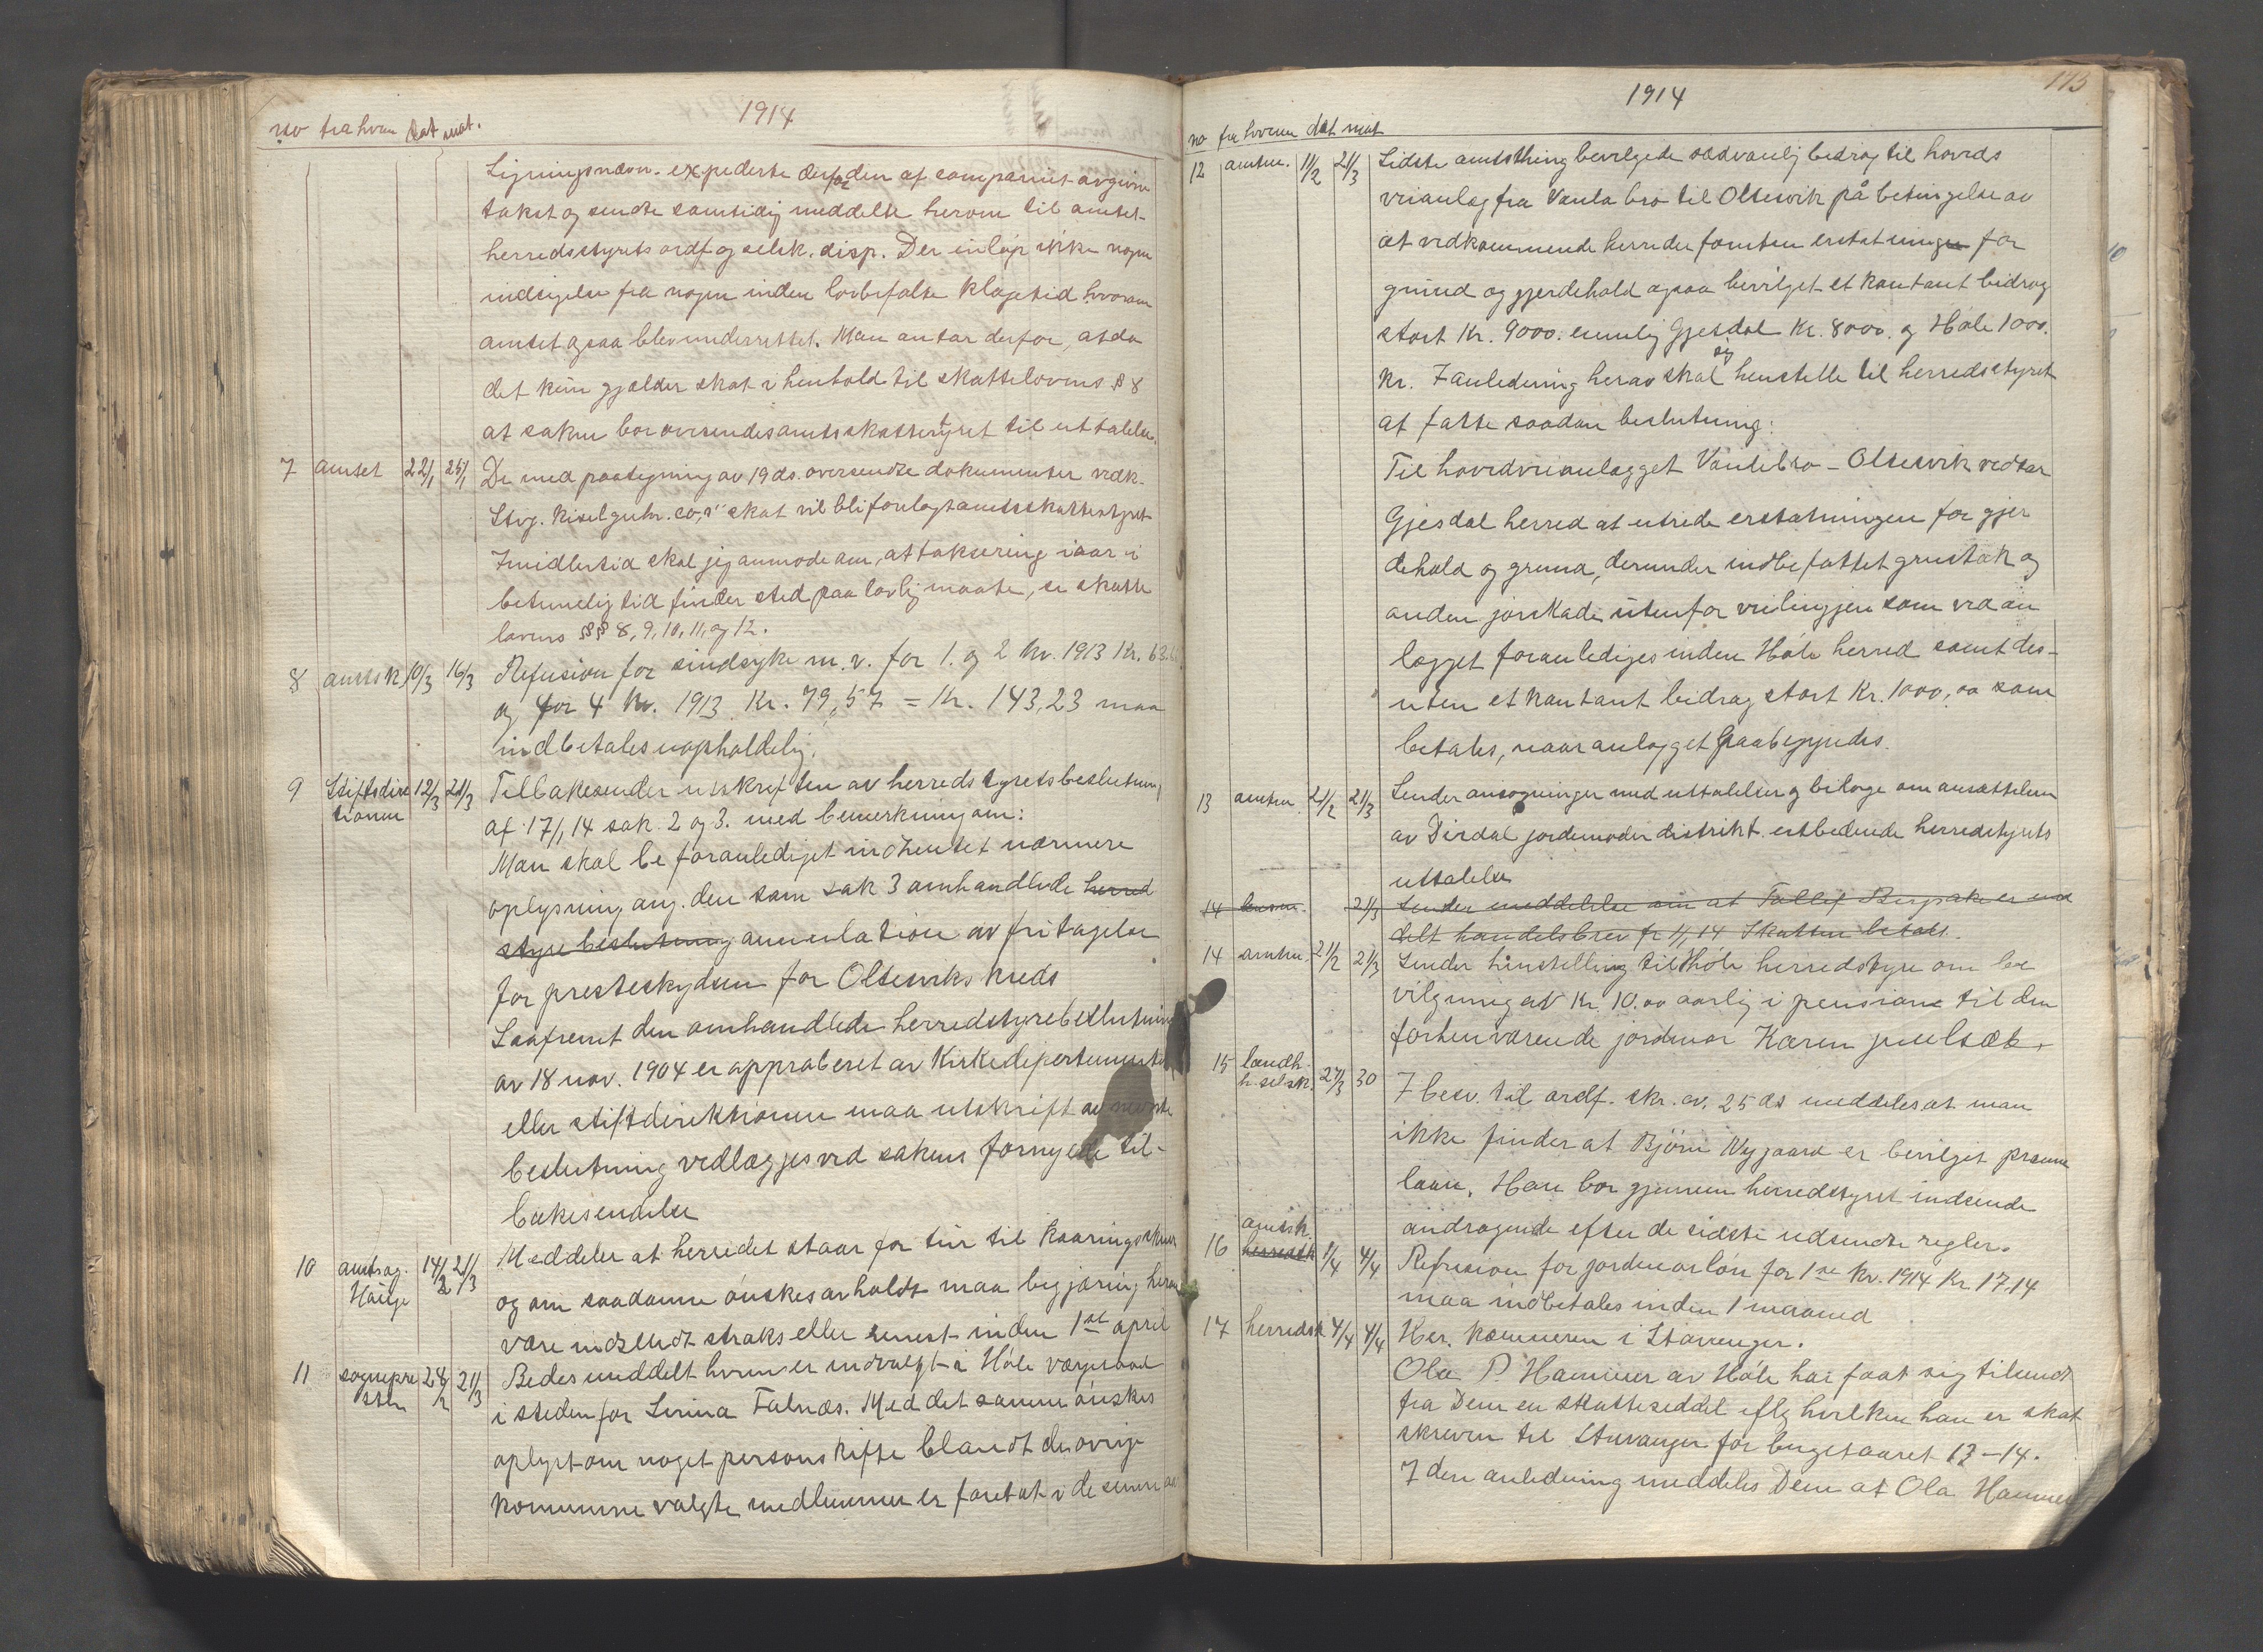 1914
no fra hvem dat mot.
Ligningsnævn. expederte derfor den af companiet avgivne
takst og sendte samtidig meddelse herom til amtet
herredsstyrets ordf og selsk. disp. Der inløp ikke nogen
indsigelse fra nogen inden lovbefalte klagetid hvorom
amtet ogsaa blev underrettet. Man antar derfor, at da
det kun gjælder skat i henhold til skattelovens § 8
at saken bor oversendes amtsskattestyret til uttalelse.
7 amtet 22/1 25/1 De med paategning av 19 ds. oversendte dokumenter vedk.
Stvg. Kiselguhr. co,s skat vil bli forelagt amtsskattestyret
Imidlertid skal jeg anmode om, at taksering iaar i
betimelig tid finder sted paa lovlig maate, se skatte
lovens §§ 8, 9, 10, 11, og 12.
8 amtsk. 10/3 16/3 Refusion for sindsyke m. v. for 1. og 2 kv. 1913 Kr. 63.66
og for 4 kv. 1913 Kr. 79,57 = Kr. 143,23 maa
indbetales uopholdelig.
9 Stiftsdirek 12/3 21/3 Tilbakesender utskriften av herredstyrets beslutning
tionen af 17/1 14 sak. 2 og 3. med bemerkning om:
Man skal be foranlediget indhentet nærmere
oplysning ang. den som sak 3 omhandlede herred
styre beslutning annulation av fritagelse
for presteskydsen for Oltesviks kreds
Saafremt den omhandlede herredstyrebeslutning
av 18 nov. 1904 er approberet av Kirkedepartementet
eller stiftdirektionen maa utskrift av nævnte
beslutning vedlægges ved sakens fornyede til-
bakesendelse
10 amtsag. 14/2 21/3 Meddeler at herredet staar for tur til kaaringsskuer
Hauge og om saadanne ønskes avholdt maa begjæring herom
være indsendt straks eller senest inden 1ste april
11 sognepre 28/2 21/3 Bedes meddelt hvem er indvalgt i Høle vergeraad
sten i steden for Serina Falnæs. Med det samme ønskes
oplyst om noget personskifte blandt de øvrige
kommune valgte medlemmer er foretat i de senere aar
1914
173
no fra hvem dat mot
12 amtm. 11/2 21/3 Sidste amtsthing bevilgede sædvanlig bidrag til hoveds
veianlæg fra Vaula bro til Oltesvik på betingelse av
at vedkommende herreder foruten erstatningen for
grund og gjerdehold ogsaa bevilget et kontant bidrag
stort Kr. 9000. nemlig Gjesdal Kr. 8000. og Høle 1000.
Kr. I anledning herav skal jeg henstille til herredsstyret
at fatte saadan beslutning:
Til hovedveianlægget Vaulebro - Oltesvik vedtar
Gjesdal herred at utrede erstatningen for gjer
dehold og grund, derunder indbefattet grustak og
anden jordskade utenfor veilinjen som ved an
lægget foranlediges inden Høle herred samt des-
uten et kontant bidrag stort Kr. 1000,00 som
betales, naar anlægget paabegyndes.
13 amtm. 21/2 21/3 Sender ansøgninger med uttalelser og bilage om ansættelsen
av Dirdal jordemoder distrikt utbedende herredstyrets
uttalelse
14 lensm. 21/3 Sender meddelelse om at Tollef Bergsake er med
delt handelsbrev fr 1/1 14 Skatten betalt.
14 amtm. 21/2 21/3 Sender henstilling til Høle herredstyre om be
vilgning av Kr. 10.00 aarlig i pension til den
forhenværende jordmor Karen
15 landh. 27/3 30 I besv. til ordf. skr. av. 25 ds meddeles at man
h. selsk. ikke finder at Bjørn Nygaard er bevilget præmie
laan. Han bor gjennem herredstyret indsende
andragende efter de sidste udsendte regler.
16 amtsk. herredsk 1/4 4/4 Refusion for jordmorløn for 1ste kv. 1914 Kr. 17.14
maa indbetales inden 1 maaned
17 herredsk 4/4 4/4 Her. Kæmneren i Stavanger.
Ola P. Hammer av Høle har faat sig tilsendt
fra Dem en skatteseddel iflg hvilken han er skat
skreven til Stavanger for bugetaaret 13-14.
I den anledning meddeles Dem at Ola Hammer